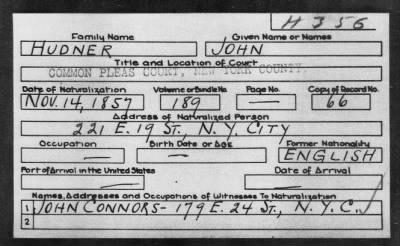 H 356
Family Name Given Name or Names
HUDNER JOHN
Title and Location of Court
COMMON PLEAS COURT, NEW YORK COUNTY.
Date of Naturalization Volume or Bundle No. Page No. Copy of Record No.
NOV. 14, 1857 189 — 66
Address of Naturalized Person
221 E. 19 ST., N.Y. CITY
Occupation Birth Date or Age Former Nationality
— — ENGLISH
Port of Arrival in the United States Date of Arrival
— —
Names, Addresses and Occupations of Witnesses To Naturalization
1 JOHN CONNORS - 179 E. 24 ST., N.Y.C.
2